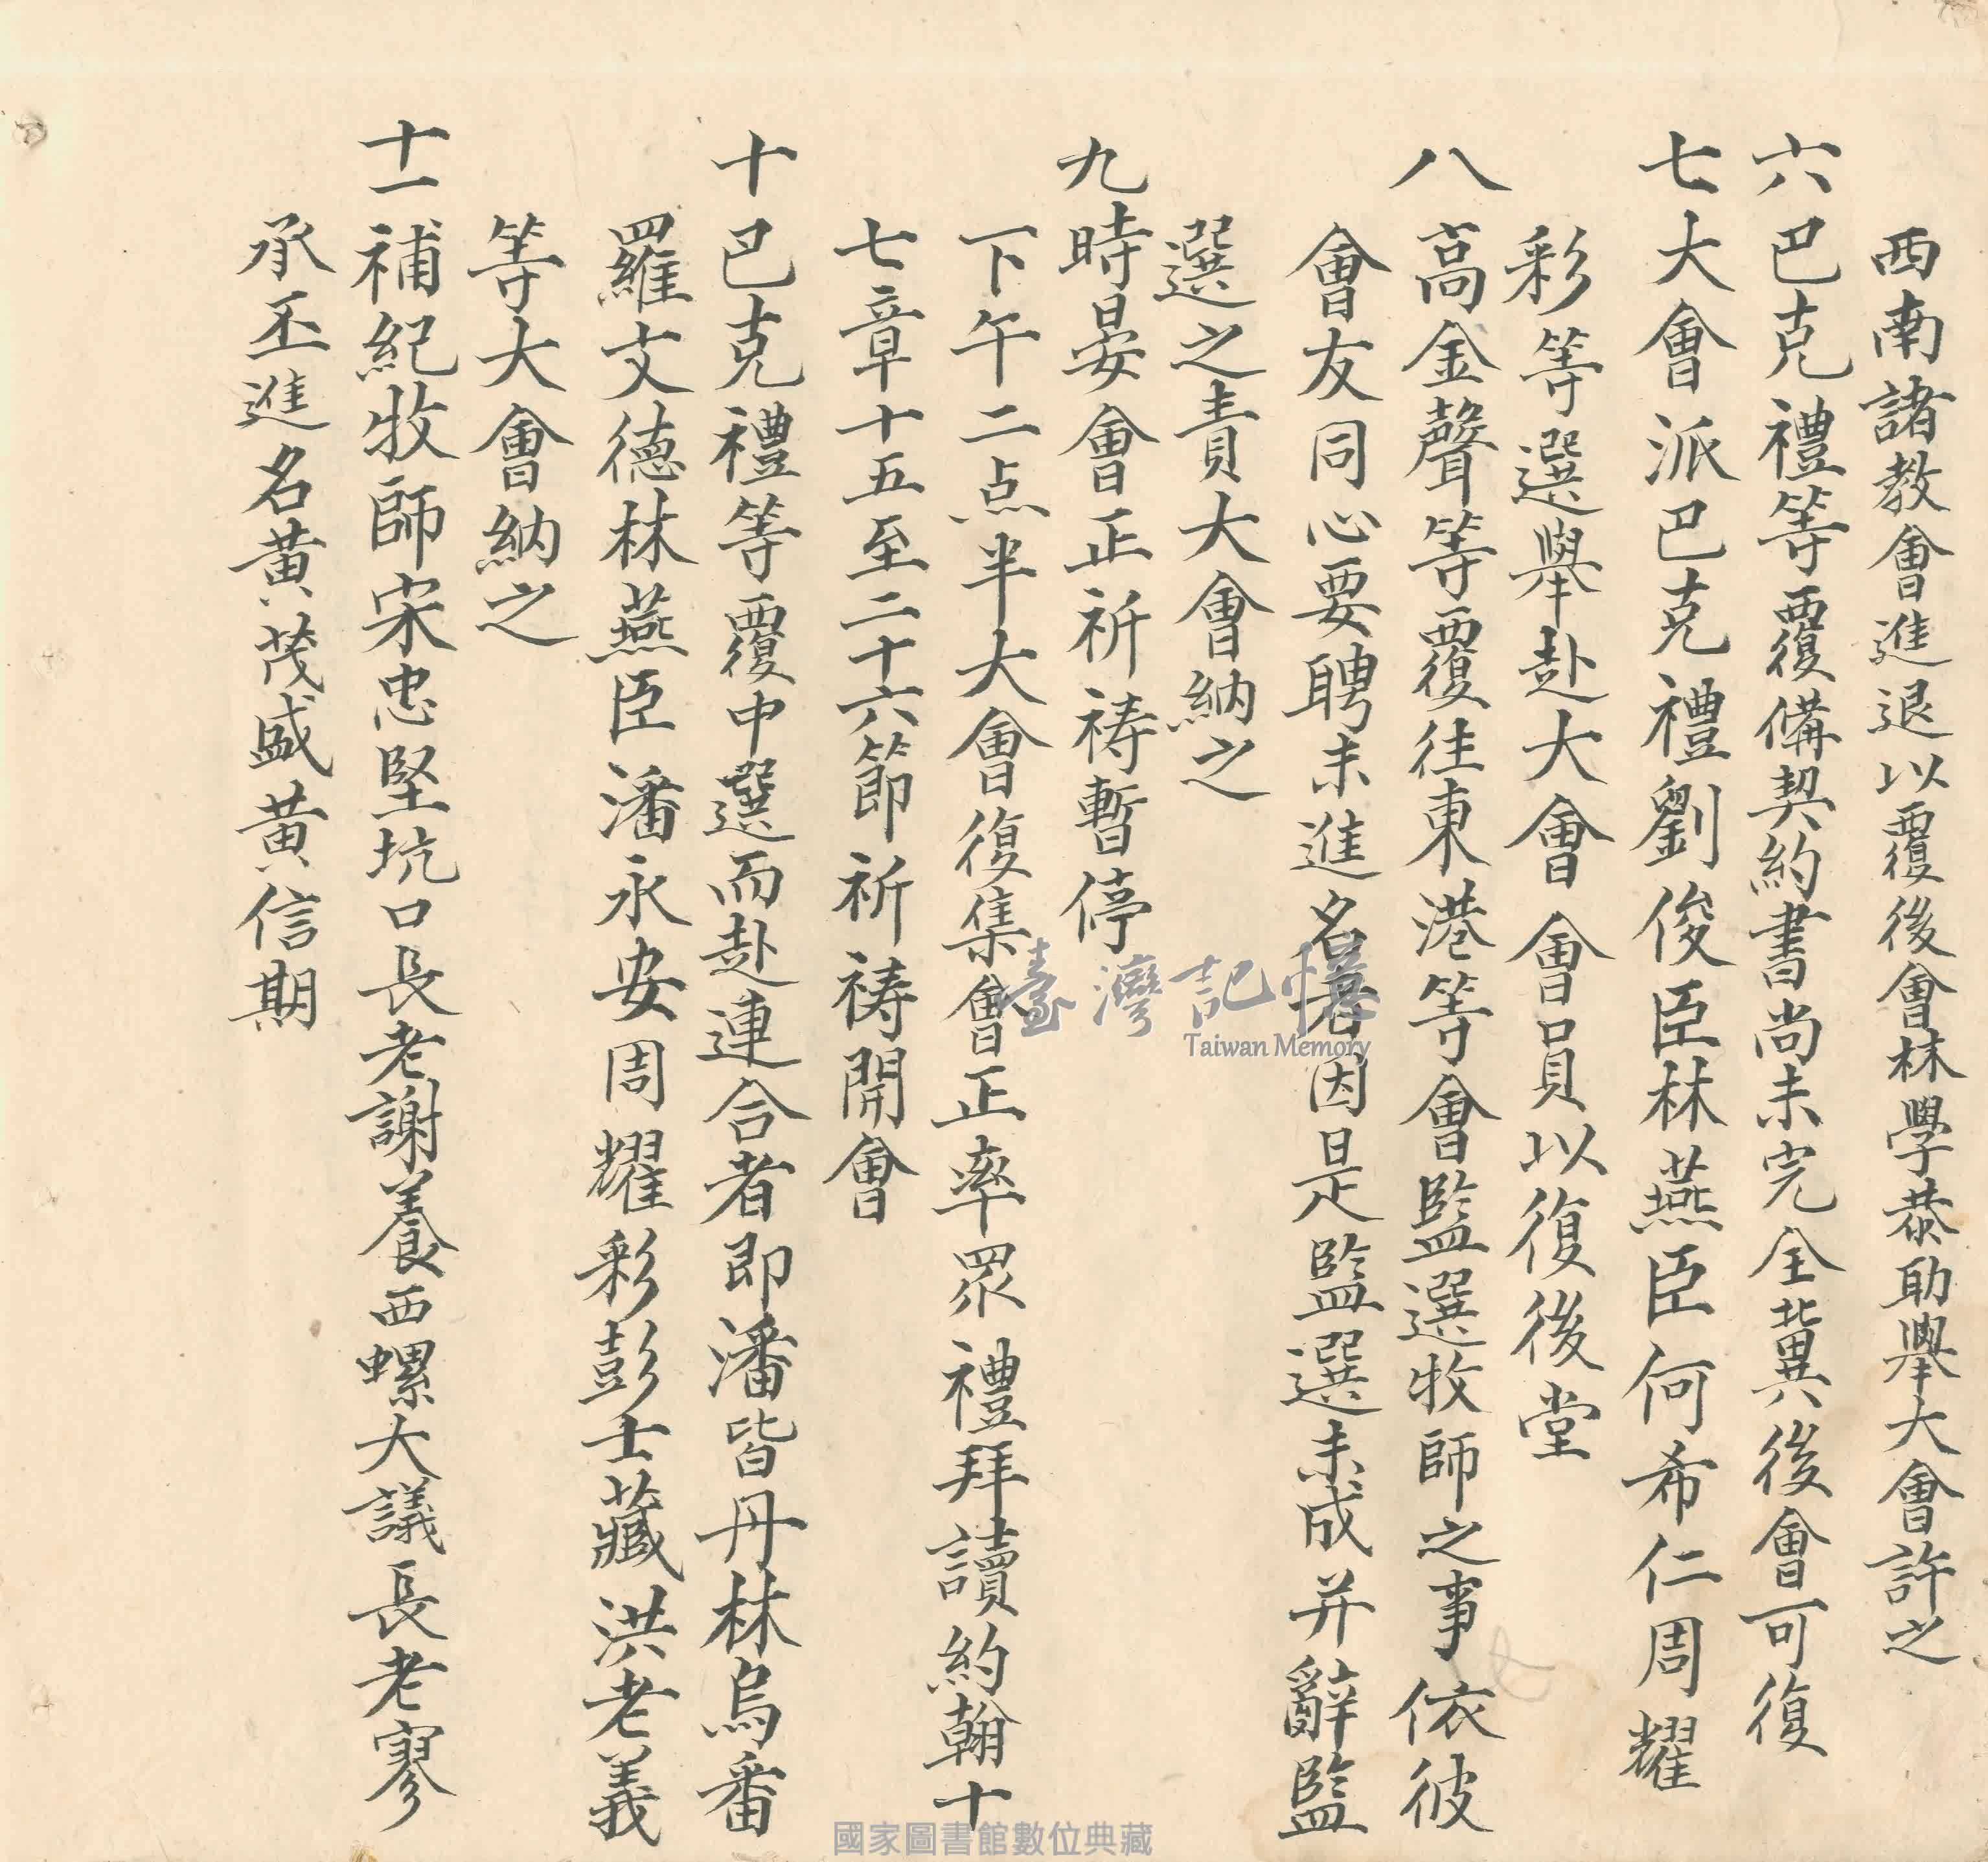 西南諸教會進退以覆後會林學恭助舉大會許之
六巴克禮等覆備契約書尚未完全冀後會可復
七大會派巴克禮劉俊臣林燕臣何希仁周耀
彩等選舉赴大會會員以復後堂
八高金聲等覆往東港等會監選牧師之事依彼
會友同心要聘未進名者因是監選未成并辭監
選之責大會納之
九時晏會正祈祷暫停
下午二点半大會復集會正率眾禮拜讀約翰十
七章十五至二十六節祈祷開會
十巴克禮等覆中選而赴連合者即潘皆丹林烏番
羅文德林燕臣潘永安周耀彩彭士藏洪老義
等大會納之
十一補紀牧師宋忠堅坑口長老謝養西螺大議長老寥
承丕進名黄茂盛黄信期
臺灣記憶
Taiwan Memory
國家圖書館數位典藏